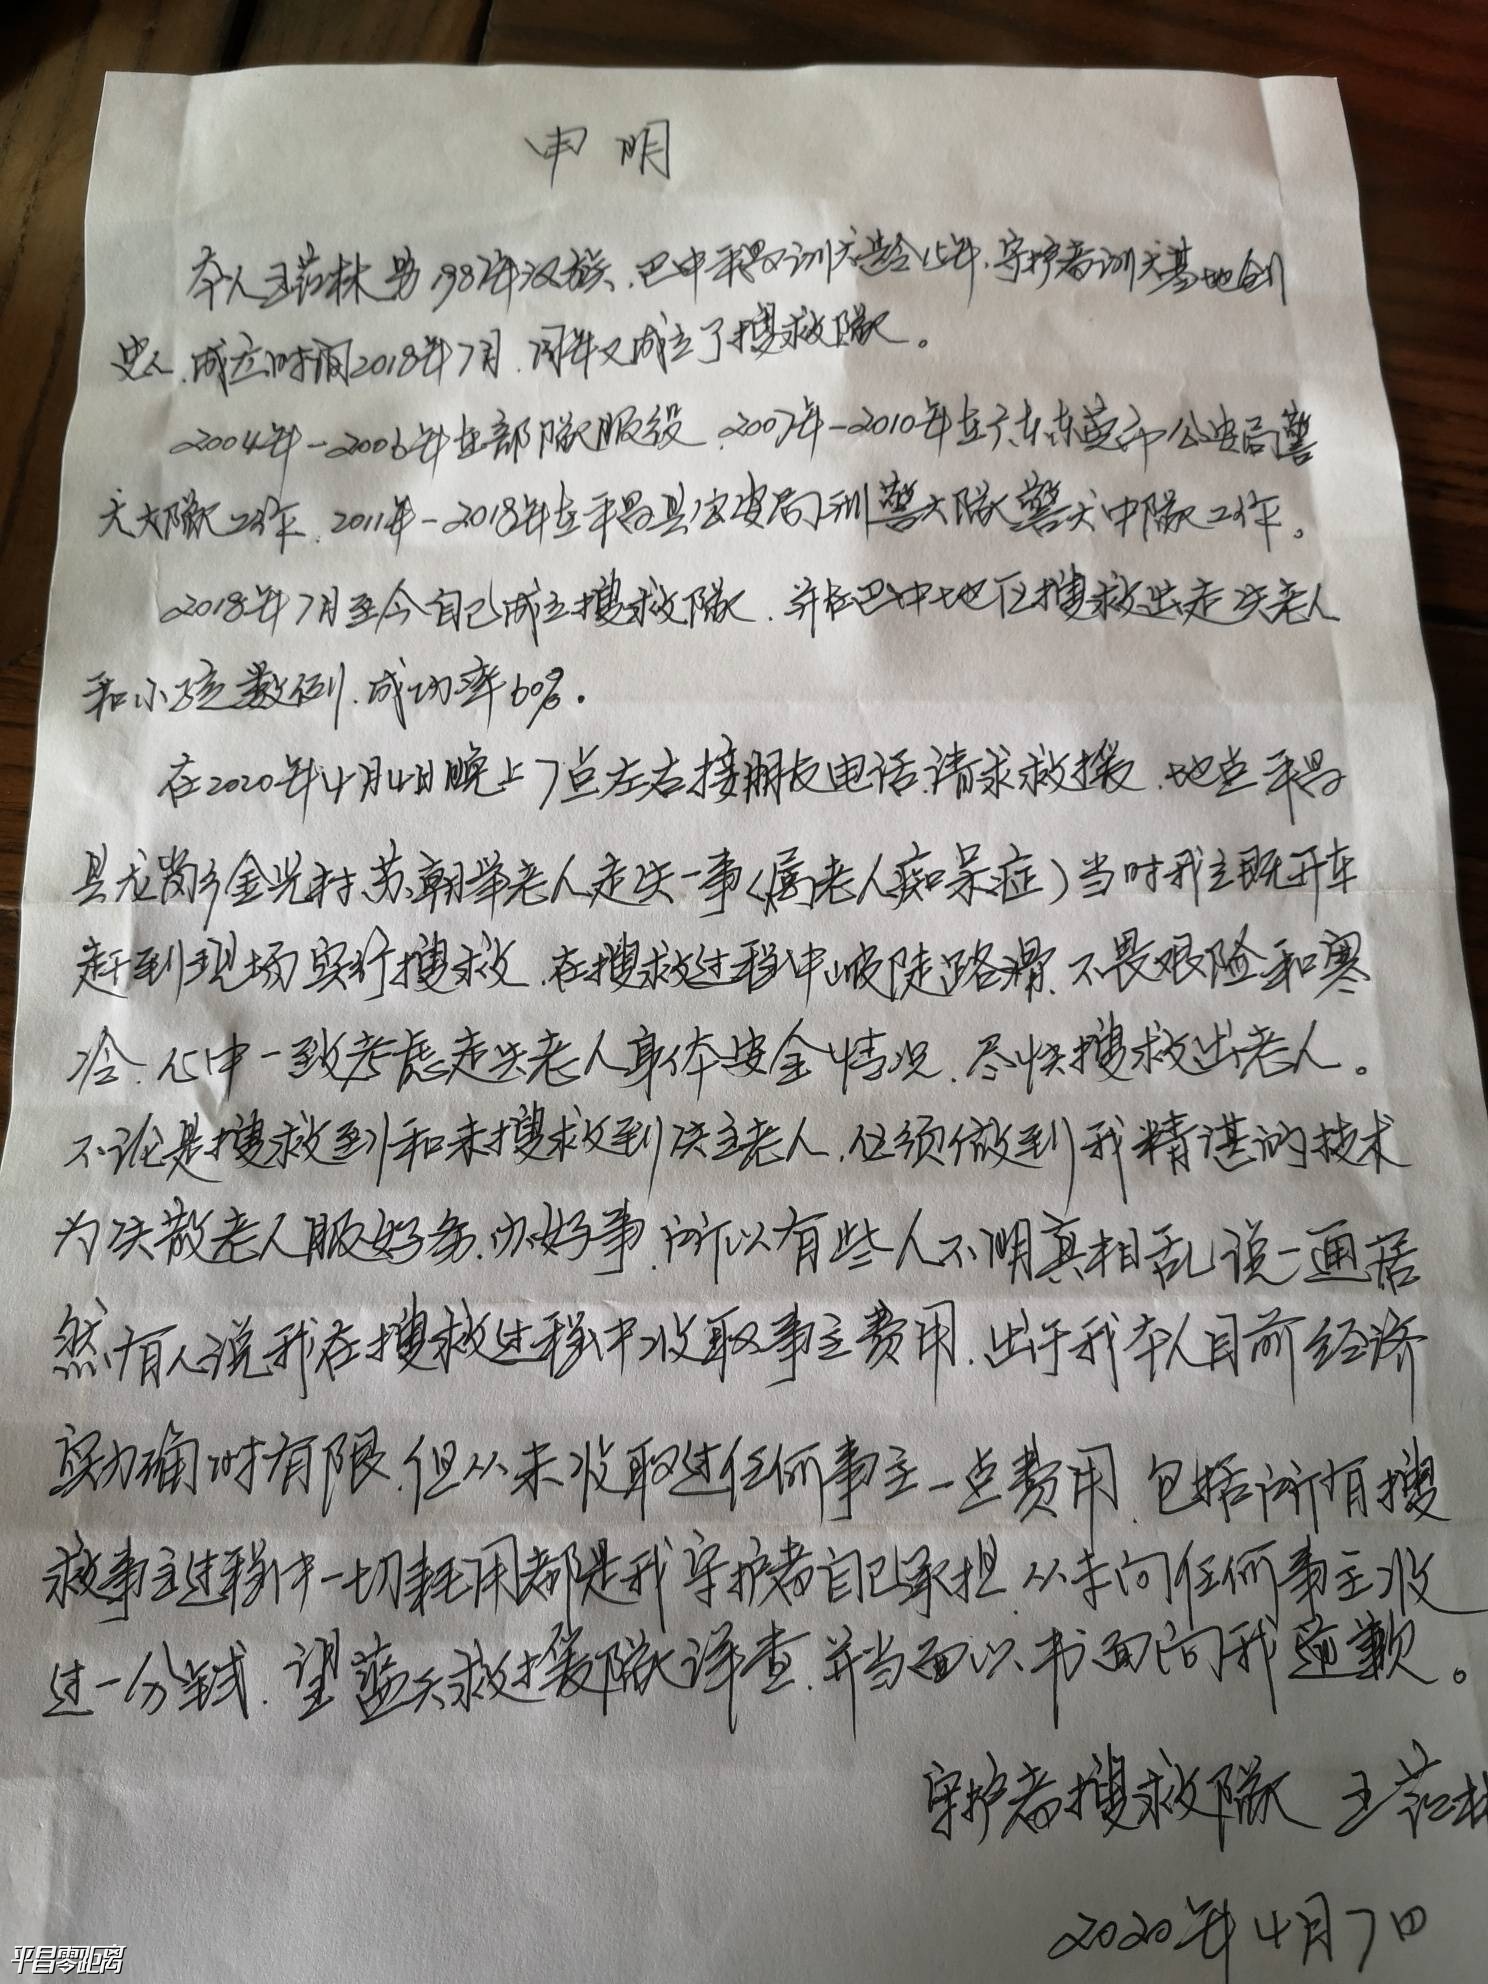 申明
本人王范林 男 1987年汉族、巴中平昌人训犬龄15年、守护者训犬基地创
史人、成立时间2018年7月、同年又成立了搜救队。
2004年-2006年在部队服役、2007年-2010年在广东东莞市公安局警
犬大队工作、2011年-2018年在平昌县公安局巡警大队警犬中队工作。
2018年7月至今自己成立搜救队、并在巴中地区搜救出走失老人
和小孩数例、成功率60%。
在2020年4月4日晚上7点左右接朋友电话、请求救援、地点平昌
县龙岗乡金光村、苏朝举老人走失一事(属老人痴呆症)当时我立既开车
赶到现场实行搜救、在搜救过程中坡陡路滑、不畏艰险和寒
冷、心中一致考虑走失老人身体安全情况、尽快搜救出老人。
不论是搜救到和未搜救到失主老人、必须做到我精湛的技术
为失散老人服好务、办好事、所以有些人不明真相乱说一通居
然有人说我在搜救过程中收取事主费用、出于我本人目前经济
实力确时有限、但从未收取过任何事主一点费用、包括所有搜
救事主过程中一切耗用都是我守护者自己承担、从未向任何事主收
过一分钱、望蓝天救援队详查、并当面以书面向我道歉。
守护者搜救队 王范林
2020年4月7日
平昌零距离